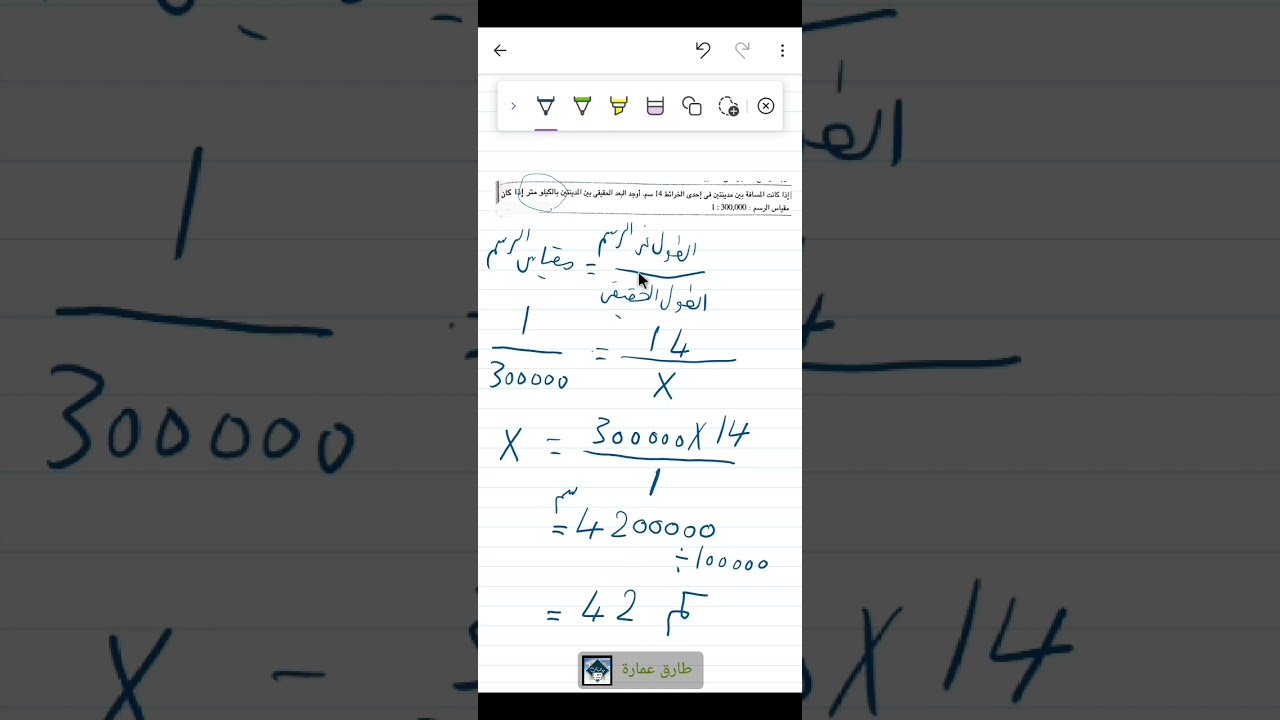 إذا كانت المسافة بين مدينتين فى إحدى الخرائط 14 سم. أوجد البعد الحقيقى بين المدينتين بالكيلو متر إذا كان
مقياس الرسم : 300,000 : 1
الطول في الرسم = مقياس الرسم
الطول الحقيقي
1 = 14
300000 X
X = 300000 X 14
1
سم
= 4200000
÷ 100000
= 42 كم
طارق عمارة
1
300000
X
X 14